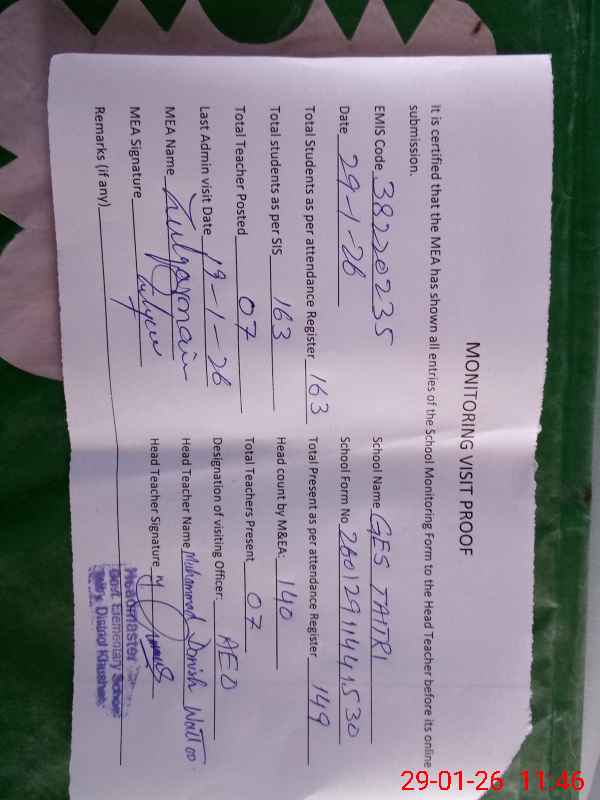 MONITORING VISIT PROOF
It is certified that the MEA has shown all entries of the School Monitoring Form to the Head Teacher before its online
submission.
EMIS Code 38220235 School Name GES TAITRI
Date 29-1-26 School Form No 260129114441530
Total Students as per attendance Register 163 Total Present as per attendance Register 149
Total students as per SIS 163 Head count by M&EA: 140
Total Teacher Posted 07 Total Teachers Present 07
Last Admin visit Date 19-1-26 Designation of visiting Officer: AEO
MEA Name Zulqarnain Head Teacher Name Muhammad Danish Wattoo
MEA Signature Head Teacher Signature
Remarks (if any)
Headmaster
Govt. Elementary School
District Khushab
29-01-26 11:46